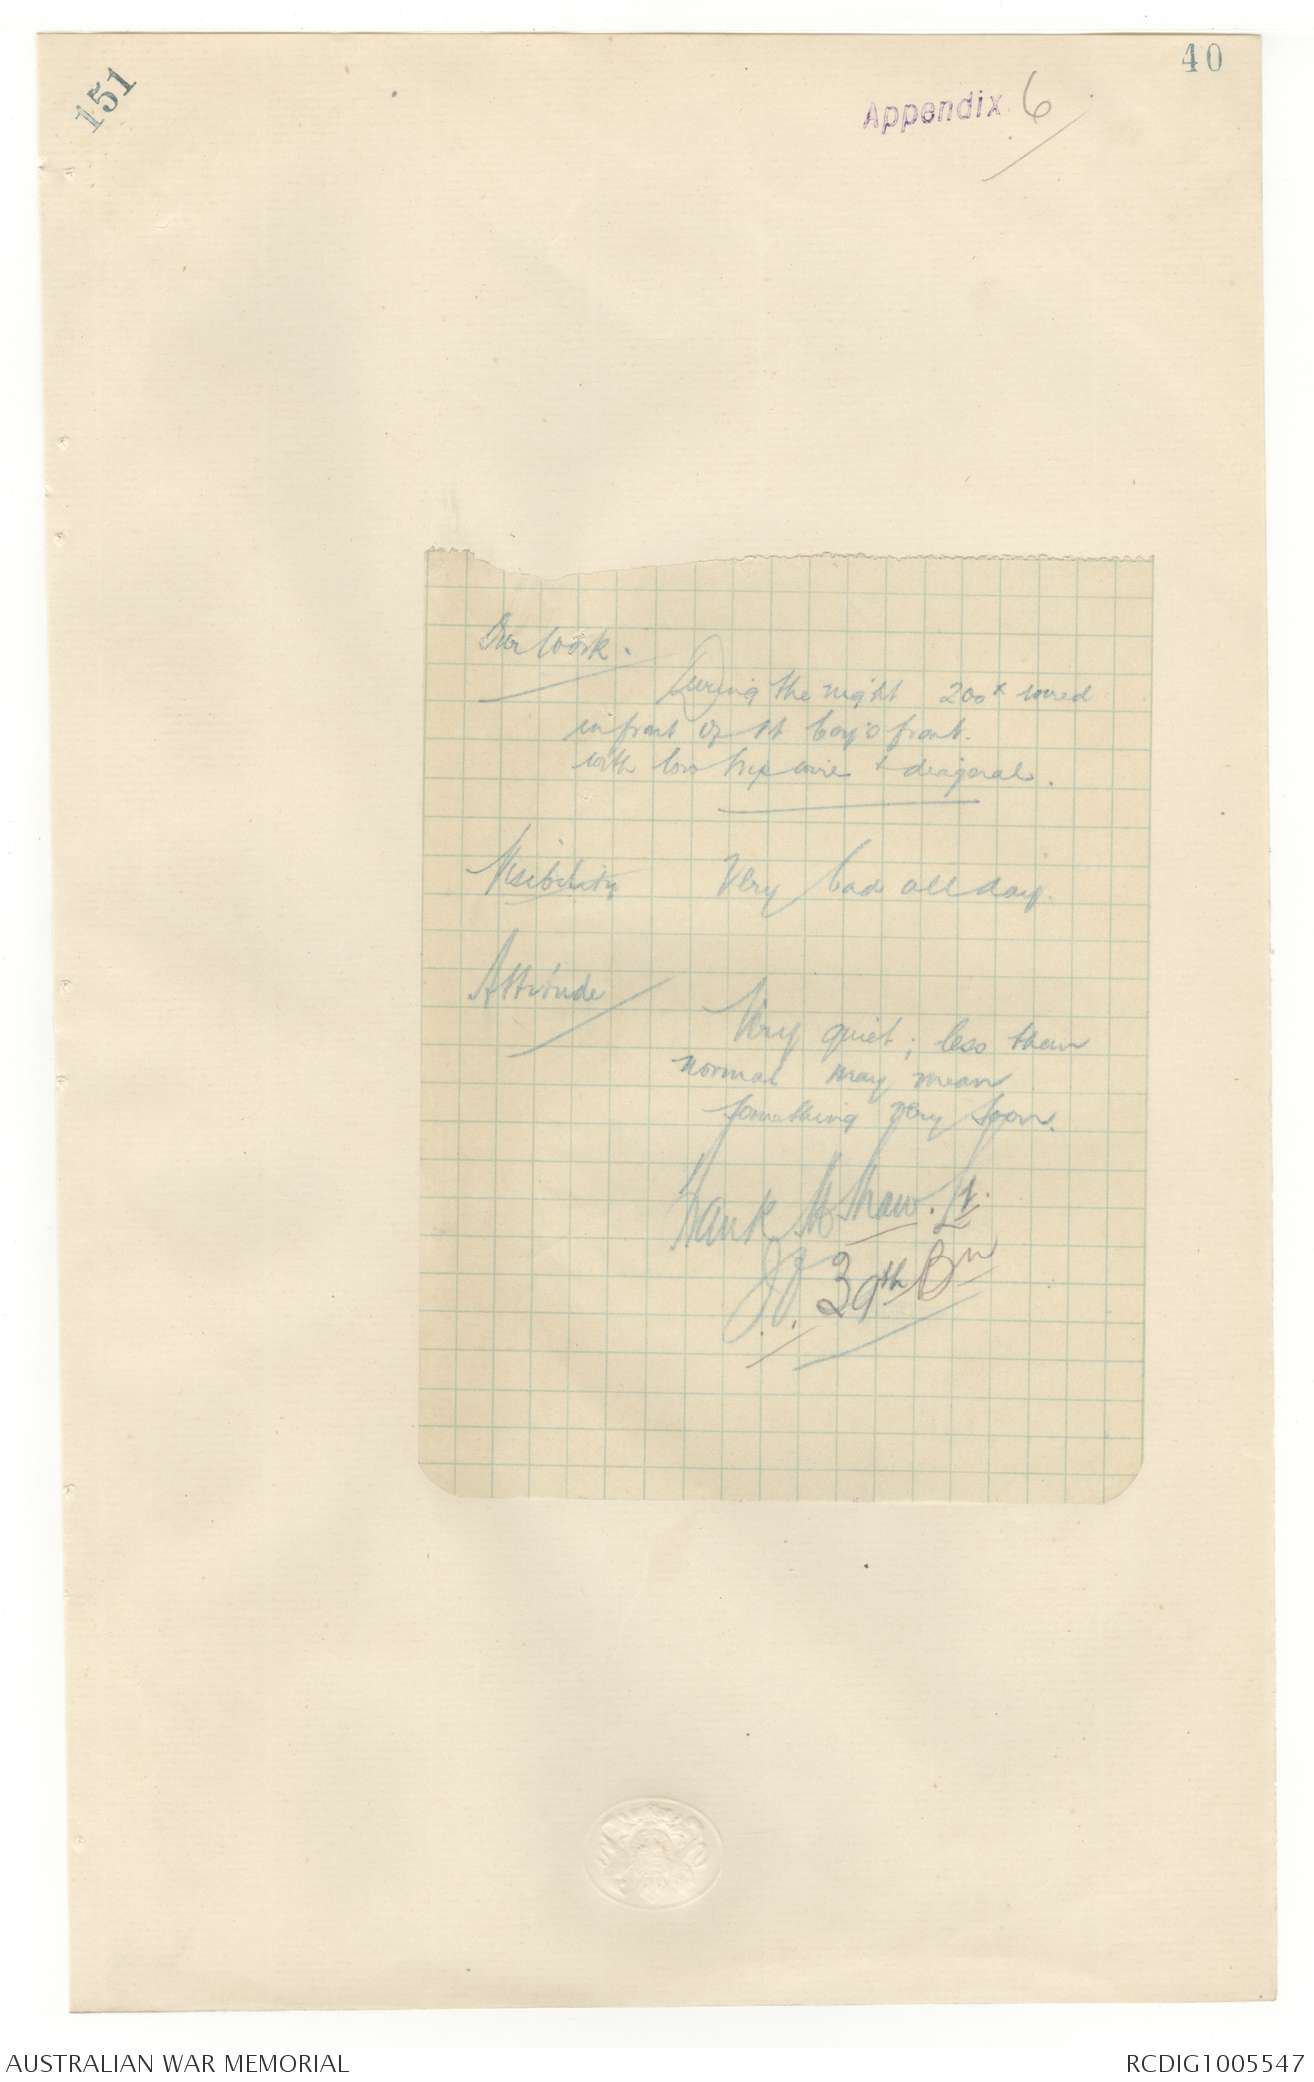 151
40
Appendix 6
Our Work.
During the night 200x wired
in front of Rt Coy's front.
with low trip wire & diagonals.
Visibility Very bad all day.
Attitude
Very quiet; less than
normal may mean
something very soon.
Frank Shaw. Lt.
39th Bn
AUSTRALIAN WAR MEMORIAL
RCDIG1005547